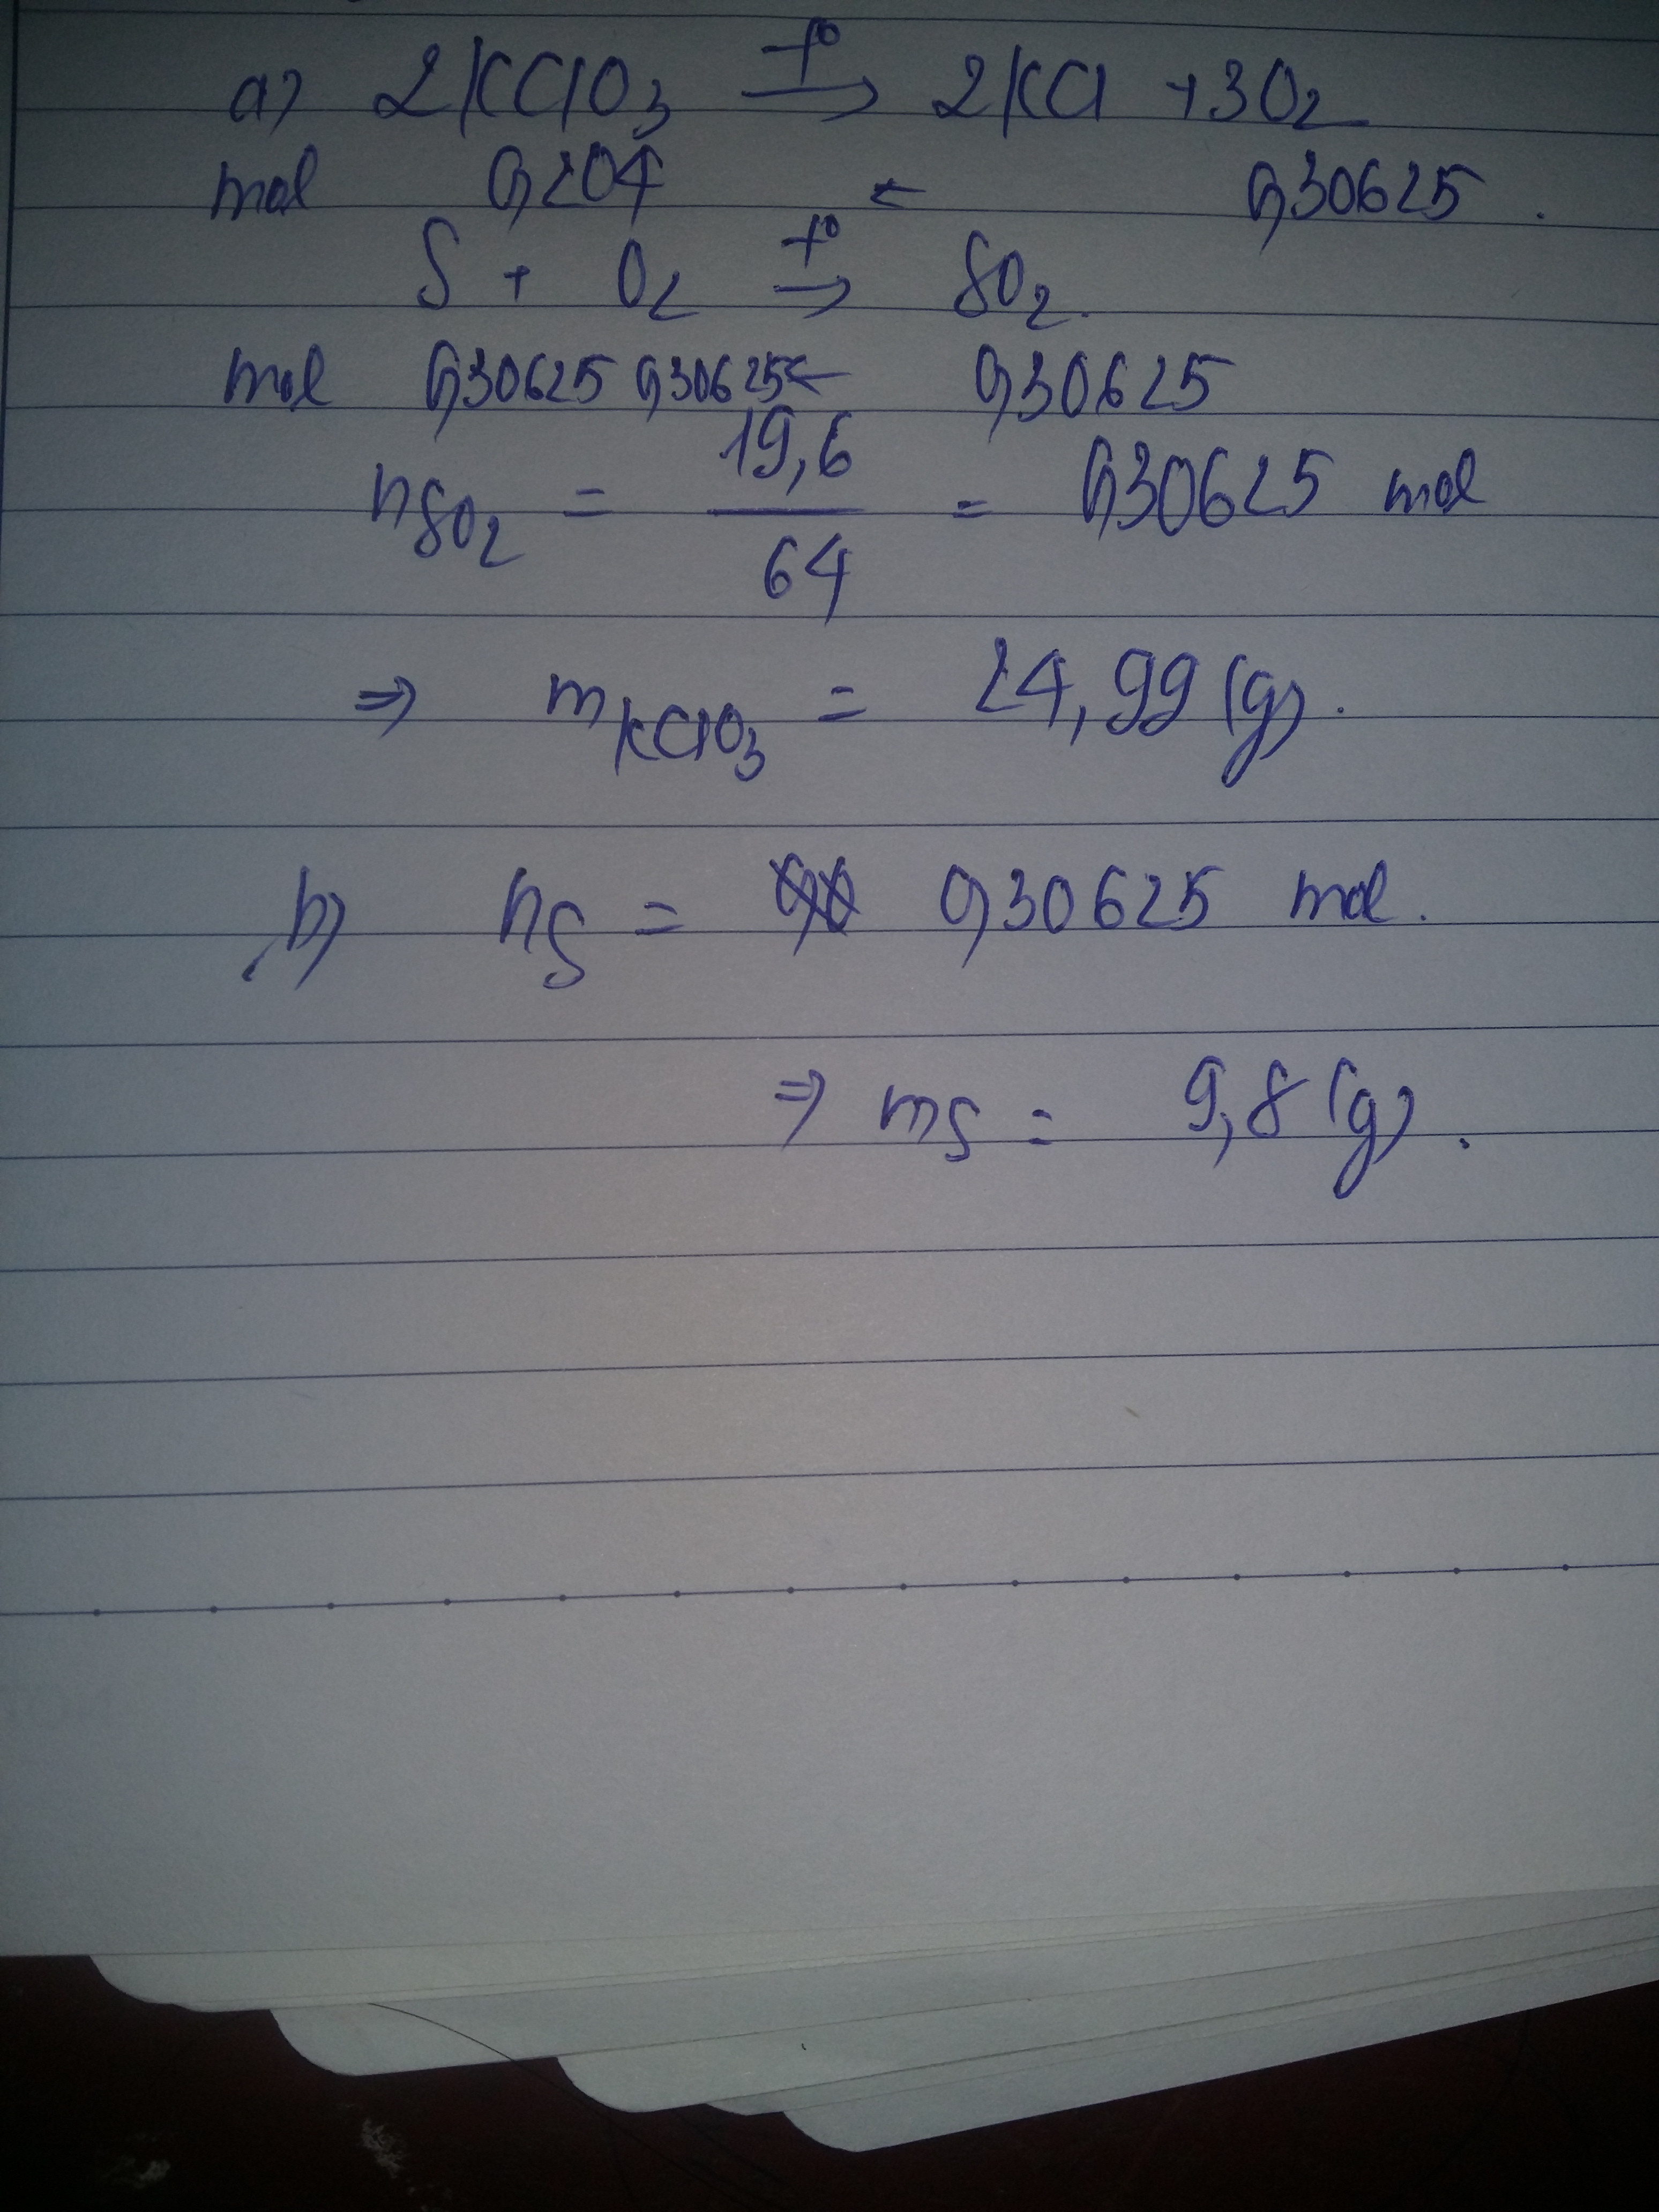 a) 2KClO3 t° → 2KCl + 3O2
mol 0,204 ← 0,30625.
S + O2 t° → SO2.
mol 0,30625 0,30625 ← 0,30625
nSO2 = 19,6 / 64 = 0,30625 mol
⇒ mKClO3 = 24,99 (g).
b) nS = 0,30625 mol.
⇒ mS = 9,8 (g).